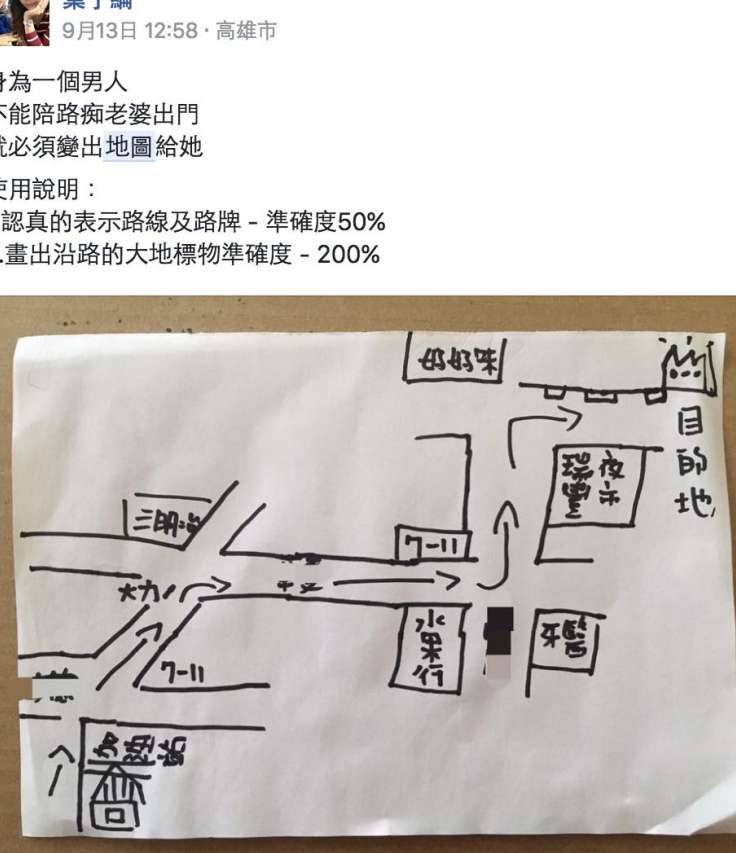 9月13日 12:58 · 高雄市
為一個男人
能陪路痴老婆出門
必須變出地圖給她
用說明：
認真的表示路線及路牌 - 準確度50%
.畫出沿路的大地標物準確度 - 200%
好好味
目的地
瑞豐夜市
三明治
7-11
大力
水果行
牙醫
7-11
加油站